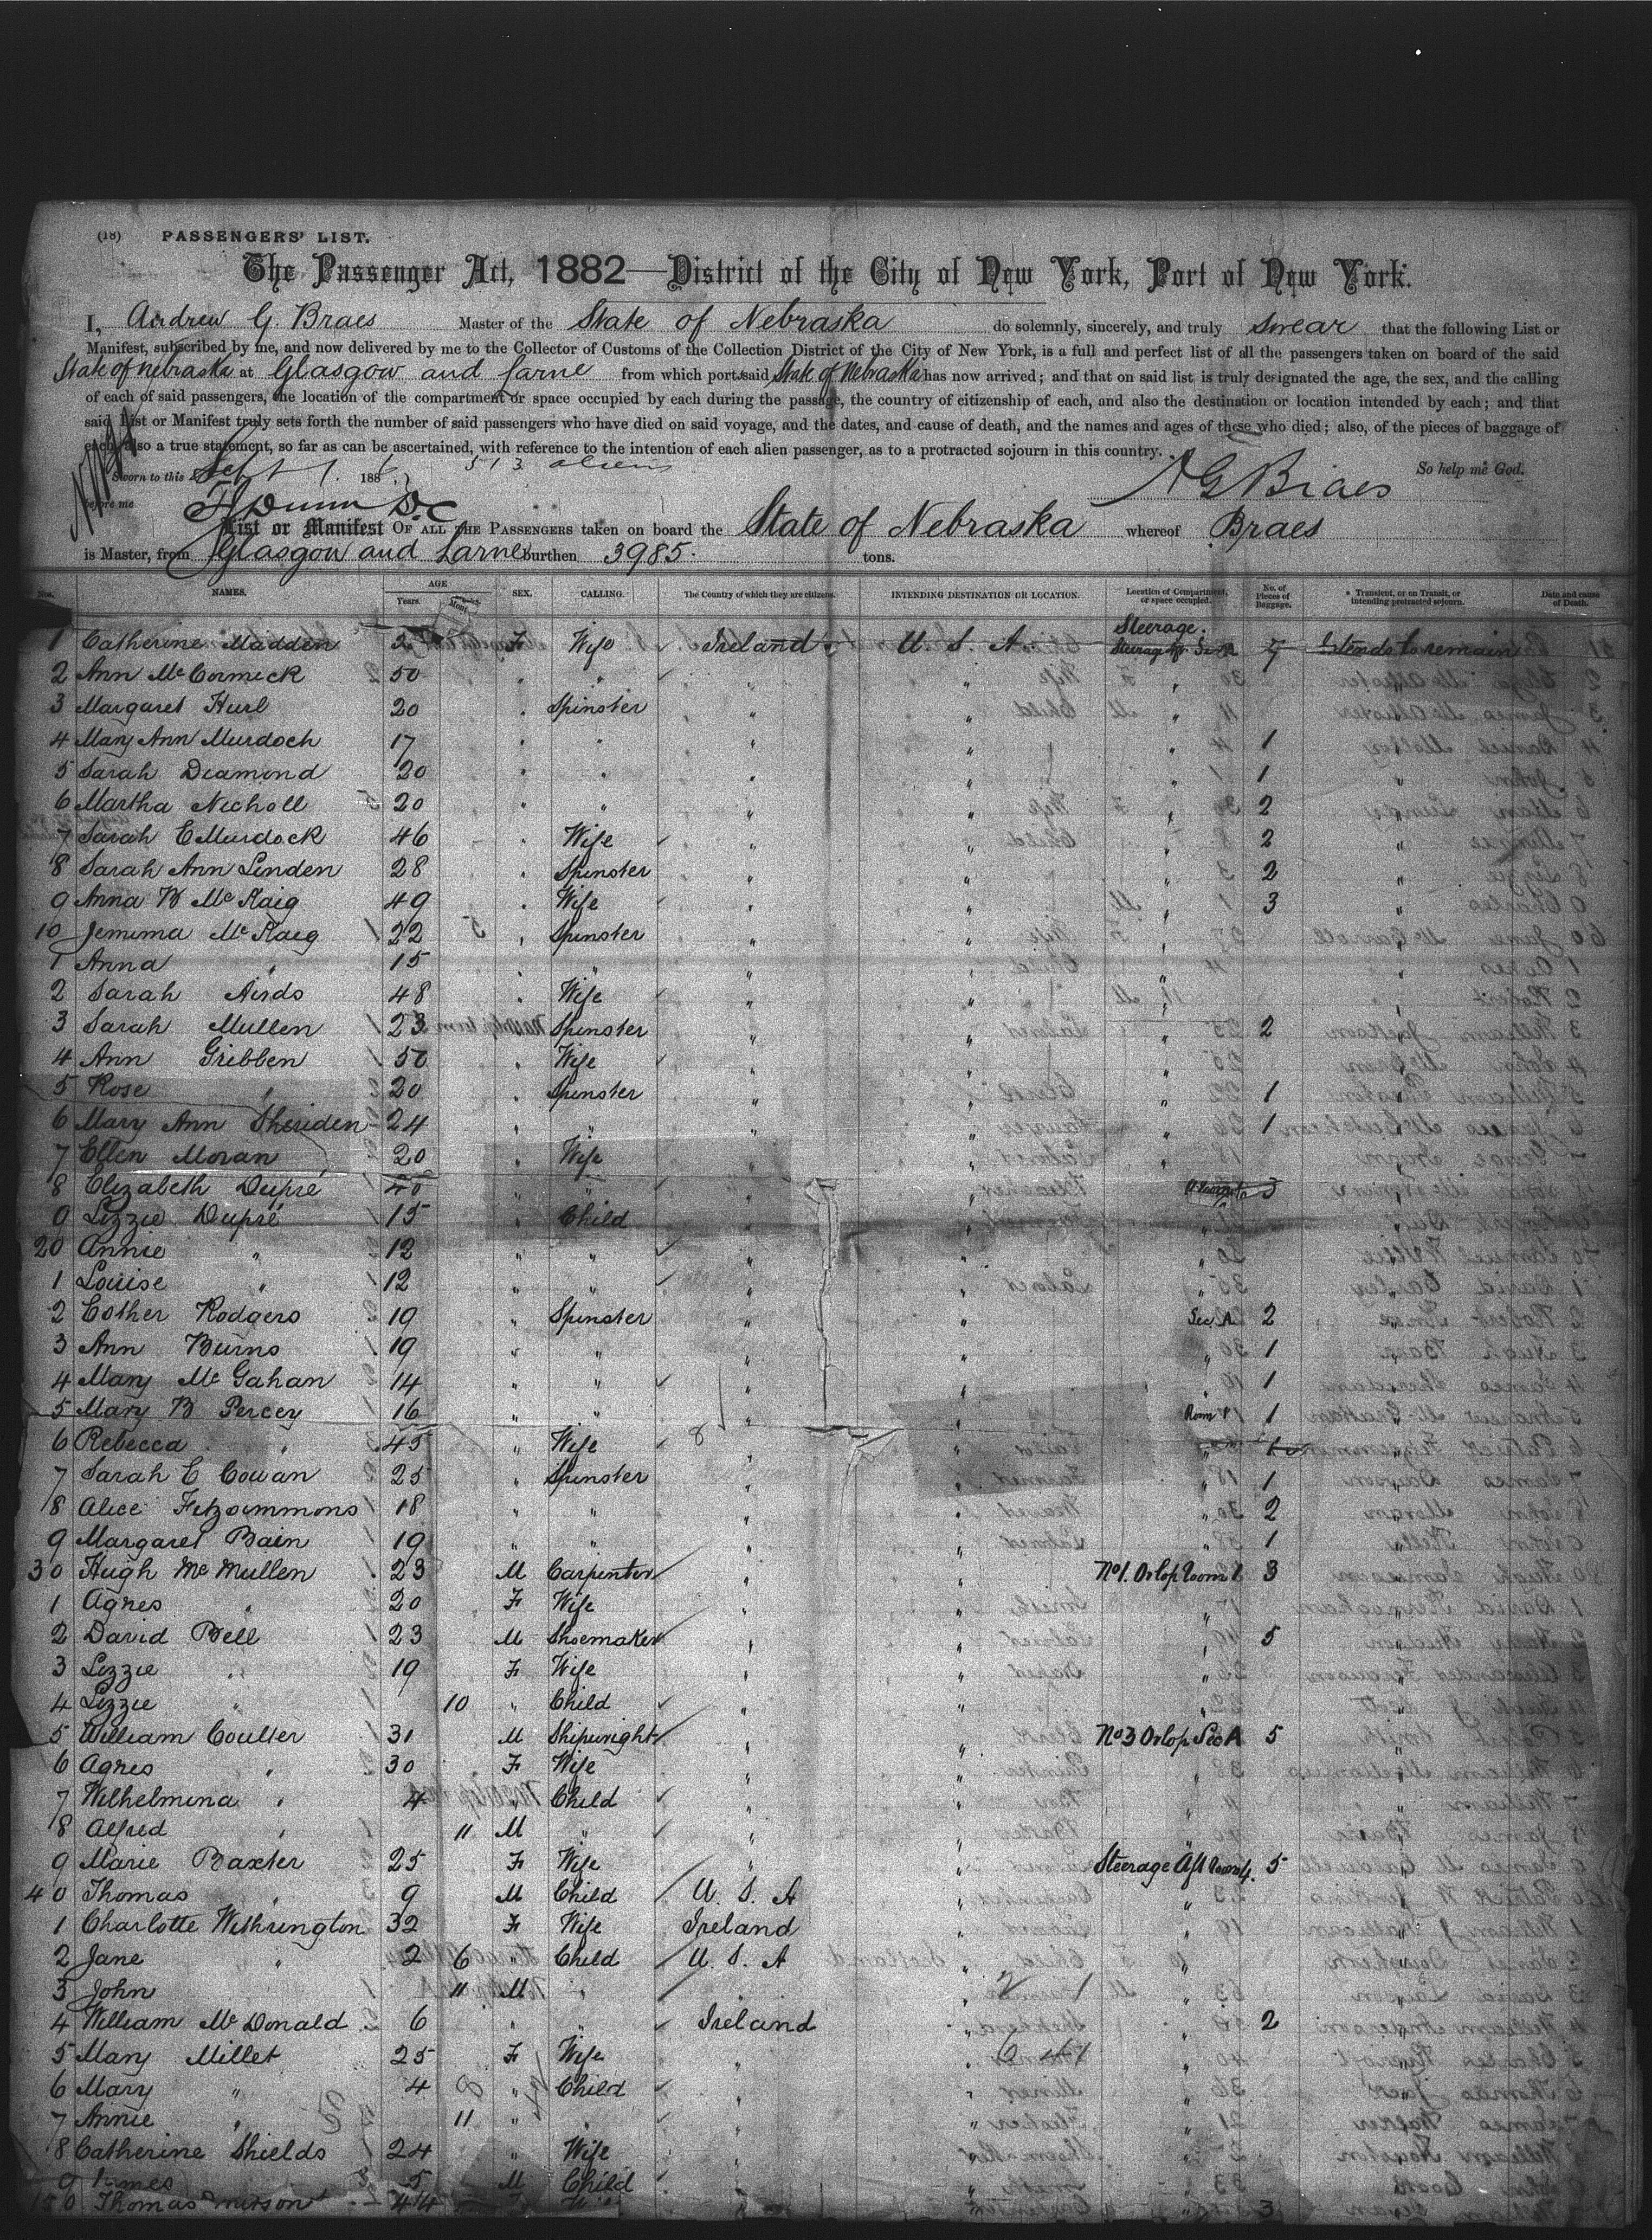 (18) PASSENGERS' LIST.
The Passenger Act, 1882—District of the City of New York, Port of New York.
I, Andrew G. Braes Master of the State of Nebraska do solemnly, sincerely, and truly swear that the following List or
Manifest, subscribed by me, and now delivered by me to the Collector of Customs of the Collection District of the City of New York, is a full and perfect list of all the passengers taken on board of the said
State of Nebraska at Glasgow and Larne from which port said State of Nebraska has now arrived; and that on said list is truly designated the age, the sex, and the calling
of each of said passengers, the location of the compartment or space occupied by each during the passage, the country of citizenship of each, and also the destination or location intended by each; and that
said List or Manifest truly sets forth the number of said passengers who have died on said voyage, and the dates, and cause of death, and the names and ages of those who died; also, of the pieces of baggage of
each, also a true statement, so far as can be ascertained, with reference to the intention of each alien passenger, as to a protracted sojourn in this country.
So help me God.
Sworn to this Sept 1. 188
513 aliens
A G Braes
before me
List or Manifest OF ALL THE PASSENGERS taken on board the State of Nebraska whereof Braes
is Master, from Glasgow and Larne burthen 3985. tons.
Nos. NAMES. AGE Years. Months. SEX. CALLING. The Country of which they are citizens. INTENDING DESTINATION OR LOCATION. Location of Compartment, or space occupied. No. of Pieces of Baggage. * Transient, or on Transit, or intending protracted sojourn. Date and cause of Death.
Steerage.
1 Catherine Madden F Wife Ireland U. S. A. Intends to remain
2 Ann McCormick 50 " " " "
3 Margaret Hurl 20 " Spinster " " "
4 Mary Ann Murdoch 17 " " " " " 1
5 Sarah Diamond 20 " " " " " 1
6 Martha Nicholl 20 " " " " " 2
7 Sarah E Murdock 46 Wife " " " 2
8 Sarah Ann Linden 28 " Spinster " " " 2
9 Anna B McKaig 49 " Wife " " " 3
10 Jemima McKaig 22 " Spinster " " "
1 Anna " 15 " " " "
2 Sarah Airds 48 " Wife " " "
3 Sarah Mullen 23 Spinster " " " 2
4 Ann Gribben 50 " Wife " " "
5 Rose " 20 " Spinster " " " 1
6 Mary Ann Sheriden 24 " " " " " 1
7 Ellen Moran 20 " Wife " " "
8 Elizabeth Dupré 40 " " " " 3
9 Lizzie Dupré 15 " Child " "
20 Annie " 12 " " " " "
1 Louise " 12 " " " " "
2 Esther Rodgers 19 " Spinster " " Sec A 2
3 Ann Burns 19 " " " " " 1
4 Mary McGahan 14 " " " " " 1
5 Mary B Percey 16 " " " " Room 1 1
6 Rebecca " 45 " Wife " " "
7 Sarah E Cowan 25 " Spinster " " " 1
8 Alice Fitzsimmons 18 " " " " " 2
9 Margaret Bain 19 " " " " " 1
30 Hugh McMullen 23 M Carpenter " " No 1. Orlop Room 1 3
1 Agnes " 20 F Wife " " "
2 David Bell 23 M Shoemaker " " " 5
3 Lizzie " 19 F Wife " " "
4 Lizzie " 10 " Child " " "
5 William Coulter 31 M Shipwright " " No 3 Orlop Sec A 5
6 Agnes " 30 F Wife " " "
7 Wilhelmina " 4 " Child " " "
8 Alfred " 11 M " " " "
9 Marie Baxter 25 F Wife " " Steerage Aft Room 4. 5
40 Thomas " 9 M Child U. S. A " "
1 Charlotte Withrington 32 F Wife Ireland " "
2 Jane " 2 6 " Child U. S. A " "
3 John " 11 M " " " "
4 William McDonald 6 " " Ireland " " 2
5 Mary Millet 25 F Wife " " "
6 Mary " 4 " Child " " "
7 Annie " 11 " " " " "
8 Catherine Shields 24 " Wife " " "
9 James 5 M Child " " "
150 Thomas 44 3